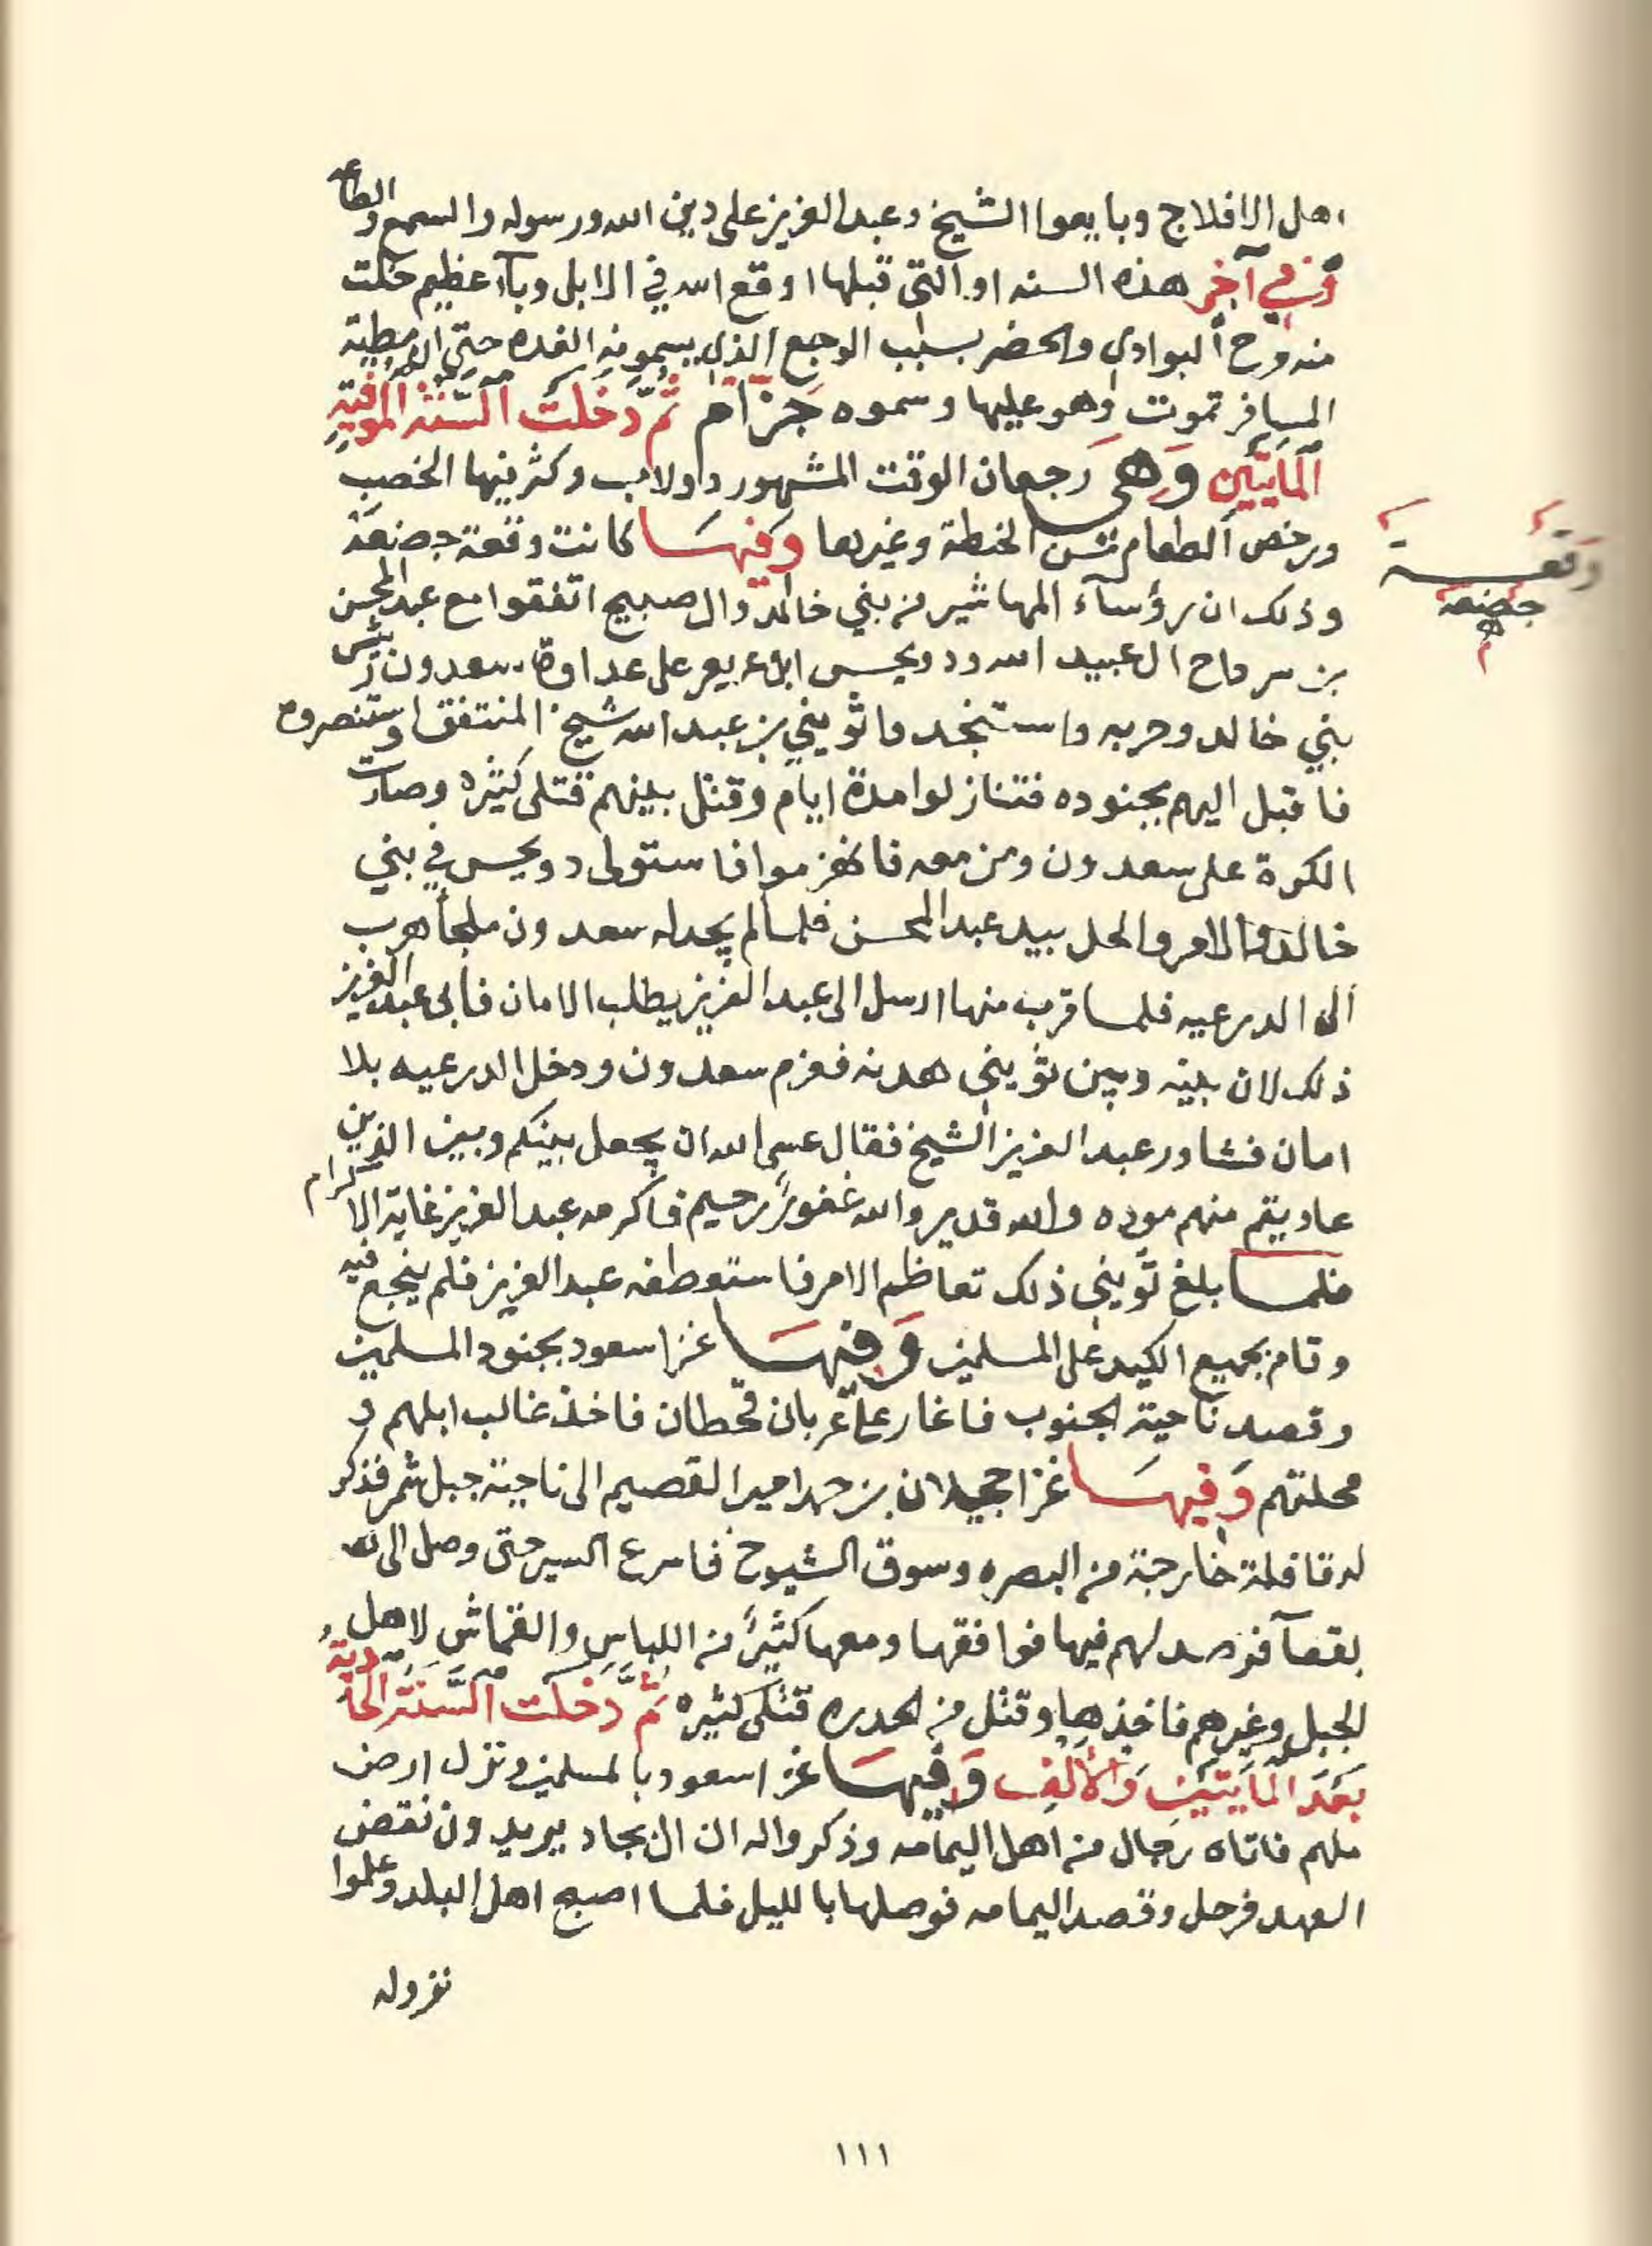 اهل الافلاج وبايعوا الشيخ وعبدالعزيز على دين الله ورسوله والسمع والطاعه
وفي آخر هذه السنه او التي قبلها اوقع الله في الابل وبآء عظيم خلت
منه مرح البوادي والحضر بسبب الوجع الذي يسمونه الغده حتى ان مطية
المسافر تموت وهو عليها وسموه جزام ثم دخلت السنة الموفية
المايتين وهي رجعان الوقت المشهور دولاب وكثر فيها الخصب
ورخص الطعام من الحنطة وغيرها وفيها كانت وقعة جضعة
وقعة
جضعة
وذلك ان رؤسآء المهاشير من بني خالد وال صبيح اتفقوا مع عبدالمحسن
بن سرداح ال عبيد الله ودويحس ابن عريعر على عداوة سعدون رئيس
بني خالد وحربه واستنجدوا ثويني بن عبدالله شيخ المنتفق واستنصروه
فاقبل اليهم بجنوده فتنازلوا مدة ايام وقتل بينهم قتلى كثيره وصارت
الكرة على سعدون ومن معه فانهزموا فاستولى دويحس في بني
خالد والامر والحل بيد عبدالمحسن فلما لم يجد له سعدون ملجأ هرب
الى الدرعيه فلما قرب منها ارسل الى عبدالعزيز يطلب الامان فابى عبدالعزيز
ذلك لان بينه وبين ثويني هدنه فعزم سعدون ودخل الدرعيه بلا
امان فشاور عبدالعزيز الشيخ فقال عسى الله ان يجعل بينكم وبين الذين
عاديتم منهم موده والله قدير والله غفورٌ رحيم فاكرمه عبدالعزيز غاية الاكرام
فلما بلغ ثويني ذلك تعاظم الامر فاستعطفه عبدالعزيز فلم ينجع فيه
وقام بجميع الكيد على المسلمين وفيها غزا سعود بجنود المسلمين
وقصد ناحية الجنوب فاغار على عربان قحطان فاخذ غالب ابلهم و
محلتهم وفيها غزا حجيلان بن حمد امير القصيم الى ناحية جبل شمر فذكر
له قافلة خارجة من البصره وسوق الشيوخ فاسرع السير حتى وصل الى
بقعآ فرصد لهم فيها فوافقها ومعها كثيرٌ من اللباس والقماش لاهل
الجبل وغيرهم فاخذها وقتل من الحدره قتلى كثيره ثم دخلت السنة الحادية
بعد المايتين والألف وفيها غزا سعود بالمسلمين ونزل ارض
ملهم فاتاه رجال من اهل اليمامه وذكروا له ان ال بجاد يريدون نقض
العهد فرحل وقصد اليمامه فوصلها بالليل فلما اصبح اهل البلد وعلموا
نزوله
١١١